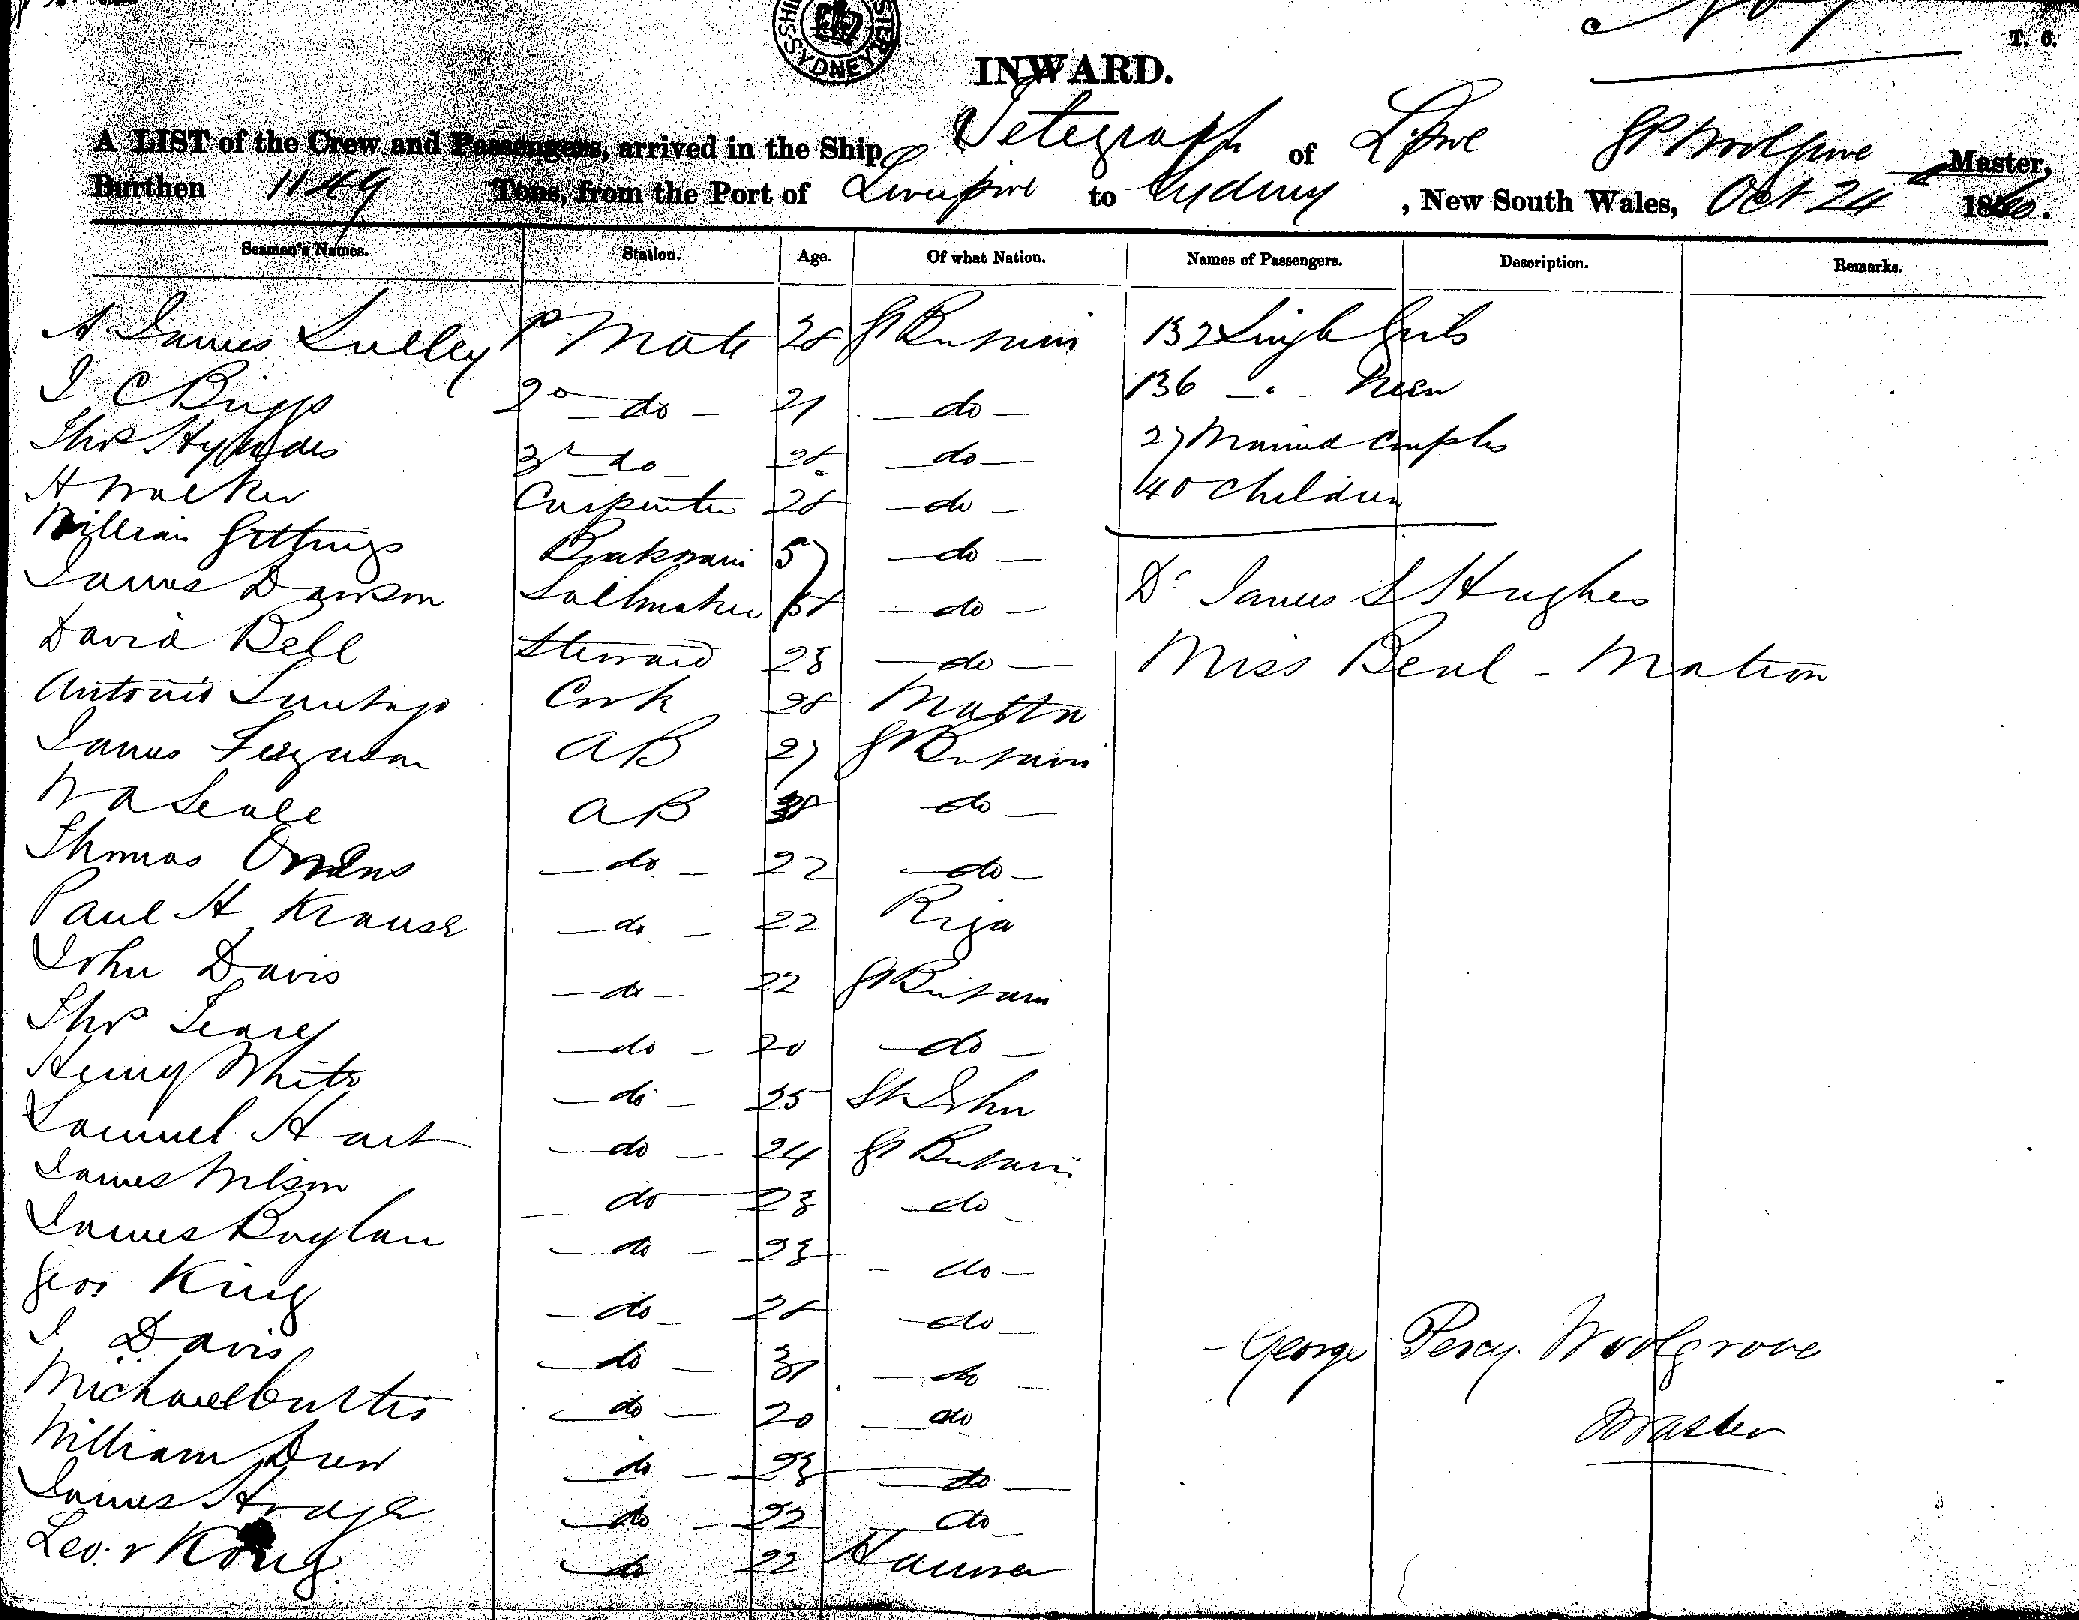 SYDNEY
T. 6.
INWARD.
A LIST of the Crew and Passengers, arrived in the Ship Telegraph of Lpool G P Woolgrove Master,
Burthen 1149 Tons, from the Port of Liverpool to Sydney, New South Wales, Oct 24 186
Seamen's Names. Station. Age. Of what Nation. Names of Passengers. Description. Remarks.
James Mate 28 Gt Britain 132 Single Girls
J C Briggs 2d do 21 do 136 " Men
Thos 3rd do 28 do 27 Married Couples
H Walker Carpenter 28 do 40 Children
William Gittings Boatswain 57 do
James Dawson Sailmaker do Dr James S Hughes
David Bell Steward 23 do Miss Beal - Matron
Antonio Cook 28 Malta
James Ferguson AB 27 Gt Britain
W A AB do
Thomas Owens do 22 do
Paul H Krause do 22 Riga
John Davis do 22 Gt Britain
Thos do 20 do
Henry White do 25 St John
Samuel Hart do 24 Gt Britain
James Wilson do 23 do
James Boylan do 23 do
Geo King do 28 do
J Davis do 31 do
Michael Curtis do 20 do
William Drew do 23 do
James do 22 do
do 22
George Percy Woolgrove
Master